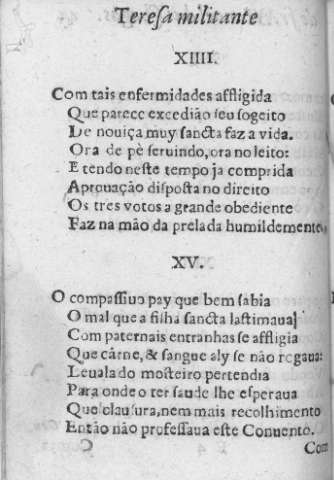 Teresa militante
XIIII.
Com tais enfermidades affligida
Que parece excedião seu sogeito
De nouiça muy sancta faz a vida.
Ora de pè seruindo, ora no leito:
E tendo neste tempo ja comprida
Aprouação disposta no direito
Os tres votos a grande obediente
Faz na mão da prelada humildemente.
XV.
O compassiuo pay que bem sabia
O mal que a filha sancta lastimaua
Com paternais entranhas se affligia
Que carne, & sangue aly se não regaua:
Leuala do mosteiro pertendia
Para onde o ter saude lhe esperaua
Que clausura, nem mais recolhimento
Então não professaua este Conuento.
C Com